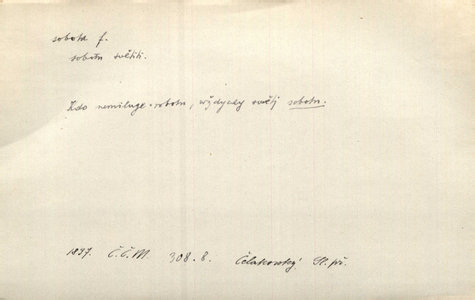 sobota f.
sobotu světiti.
Kdo nemiluge robotu, wždycky swětj sobotu.
1837. Č.Č.M. 308.8. Čelakovský Sl. př.